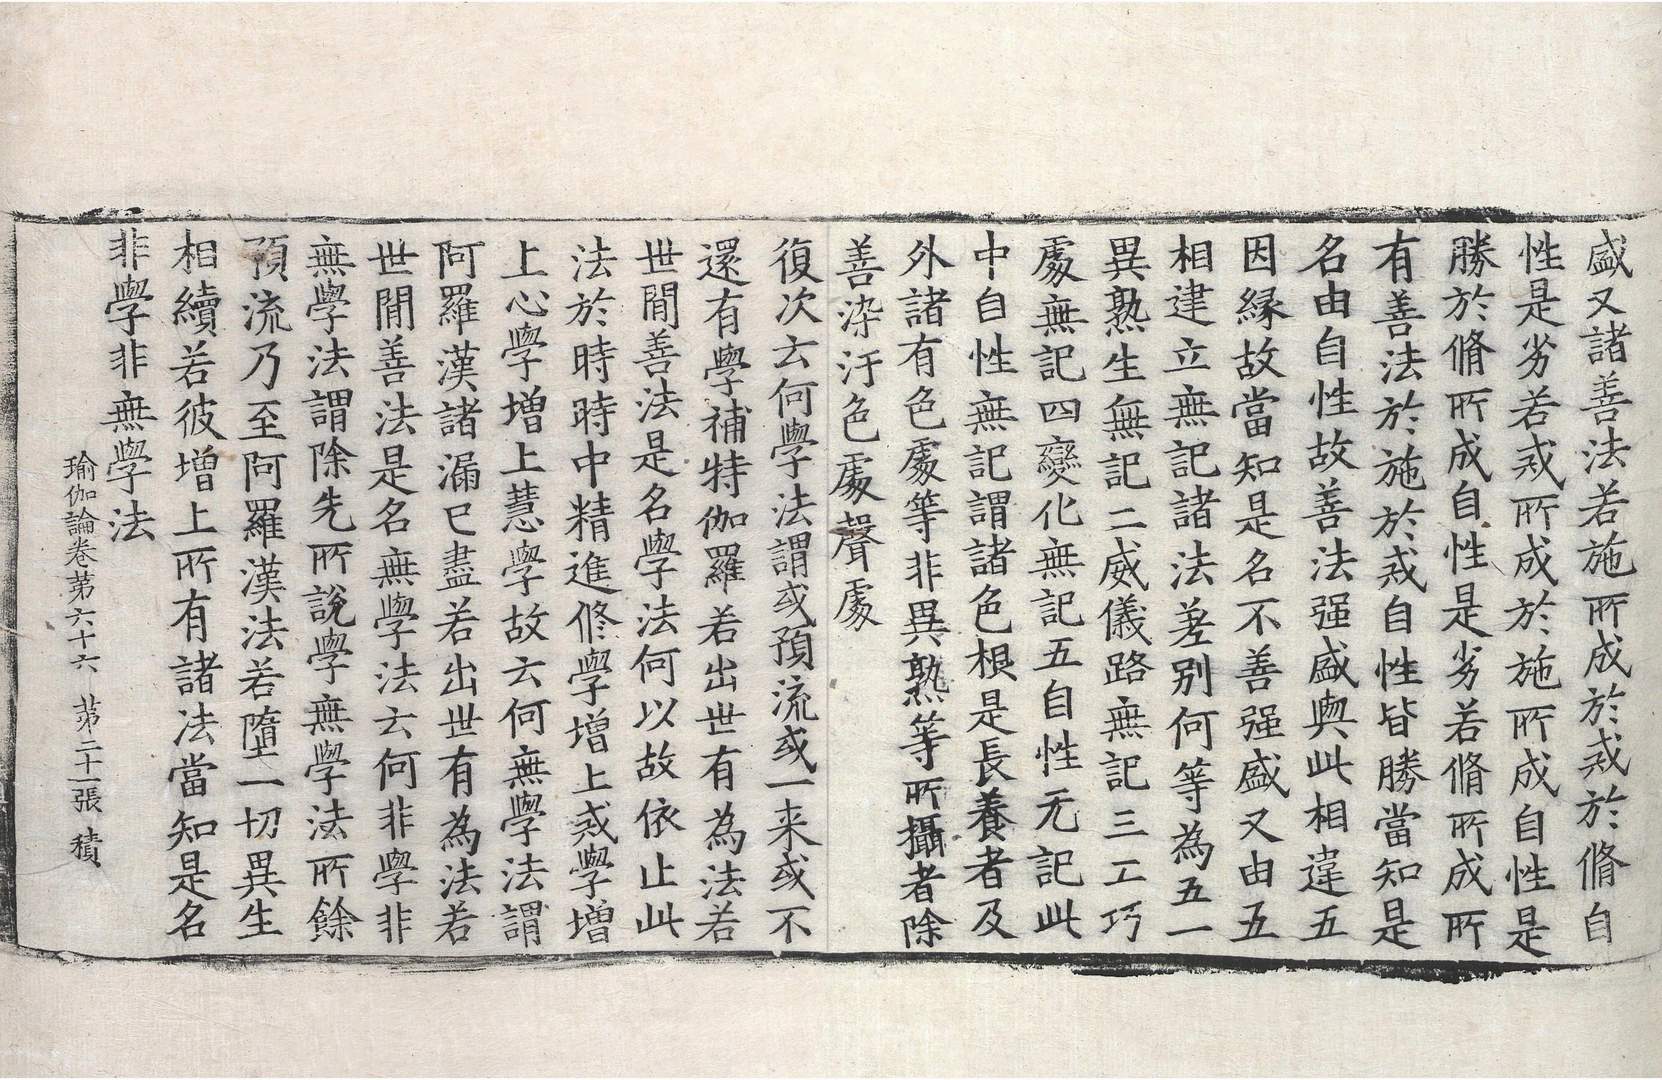 盛又諸善法若施所成於戒於脩自
性是劣若戒所成於施所成自性是
勝於脩所成自性是劣若脩所成所
有善法於施於戒自性皆勝當知是
名由自性故善法强盛與此相違五
因縁故當知是名不善强盛又由五
相建立無記諸法差别何等為五一
異熟生無記二威儀路無記三工巧
處無記四變化無記五自性无記此
中自性無記謂諸色根是長養者及
外諸有色處等非異熟等所攝者除
善染汙色處聲處
復次云何學法謂或預流或一来或不
還有學補特伽羅若出世有為法若
世間善法是名學法何以故依止此
法於時時中精進修學增上戒學增
上心學增上慧學故云何無學法謂
阿羅漢諸漏已盡若出世有為法若
世間善法是名無學法云何非學非
無學法謂除先所說學無學法所餘
預流乃至阿羅漢法若墮一切異生
相續若彼增上所有諸法當知是名
非學非無學法
瑜伽論卷苐六十六 苐二十一張 積